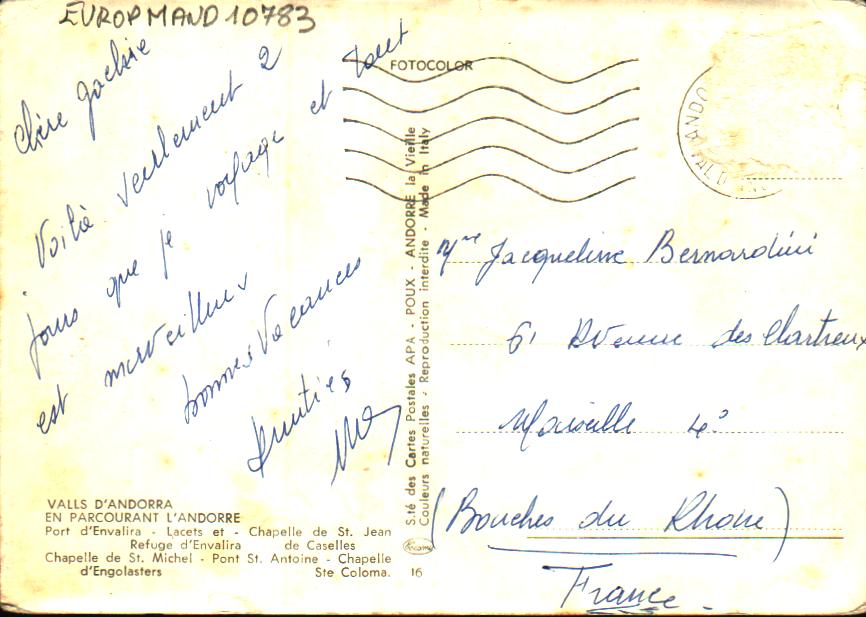 EUROPMAND10783
Chère Jackie
Voilà seulement 2
jours que je voyage et tout
est merveilleux
bonnes Vacances
Amitiés
VALLS D'ANDORRA
EN PARCOURANT L'ANDORRE
Port d'Envalira - Lacets et - Chapelle de St. Jean
Refuge d'Envalira de Caselles
Chapelle de St. Michel - Pont St. Antoine - Chapelle
d'Engolasters Ste Coloma.
16
S.té des Cartes Postales APA - POUX - ANDORRE la Vieille
Couleurs naturelles - Reproduction interdite - Made in Italy
FOTOCOLOR
Mme Jacqueline Bernardini
61 Avenue des Chartreux
Marseille 4°
(Bouches du Rhone)
France